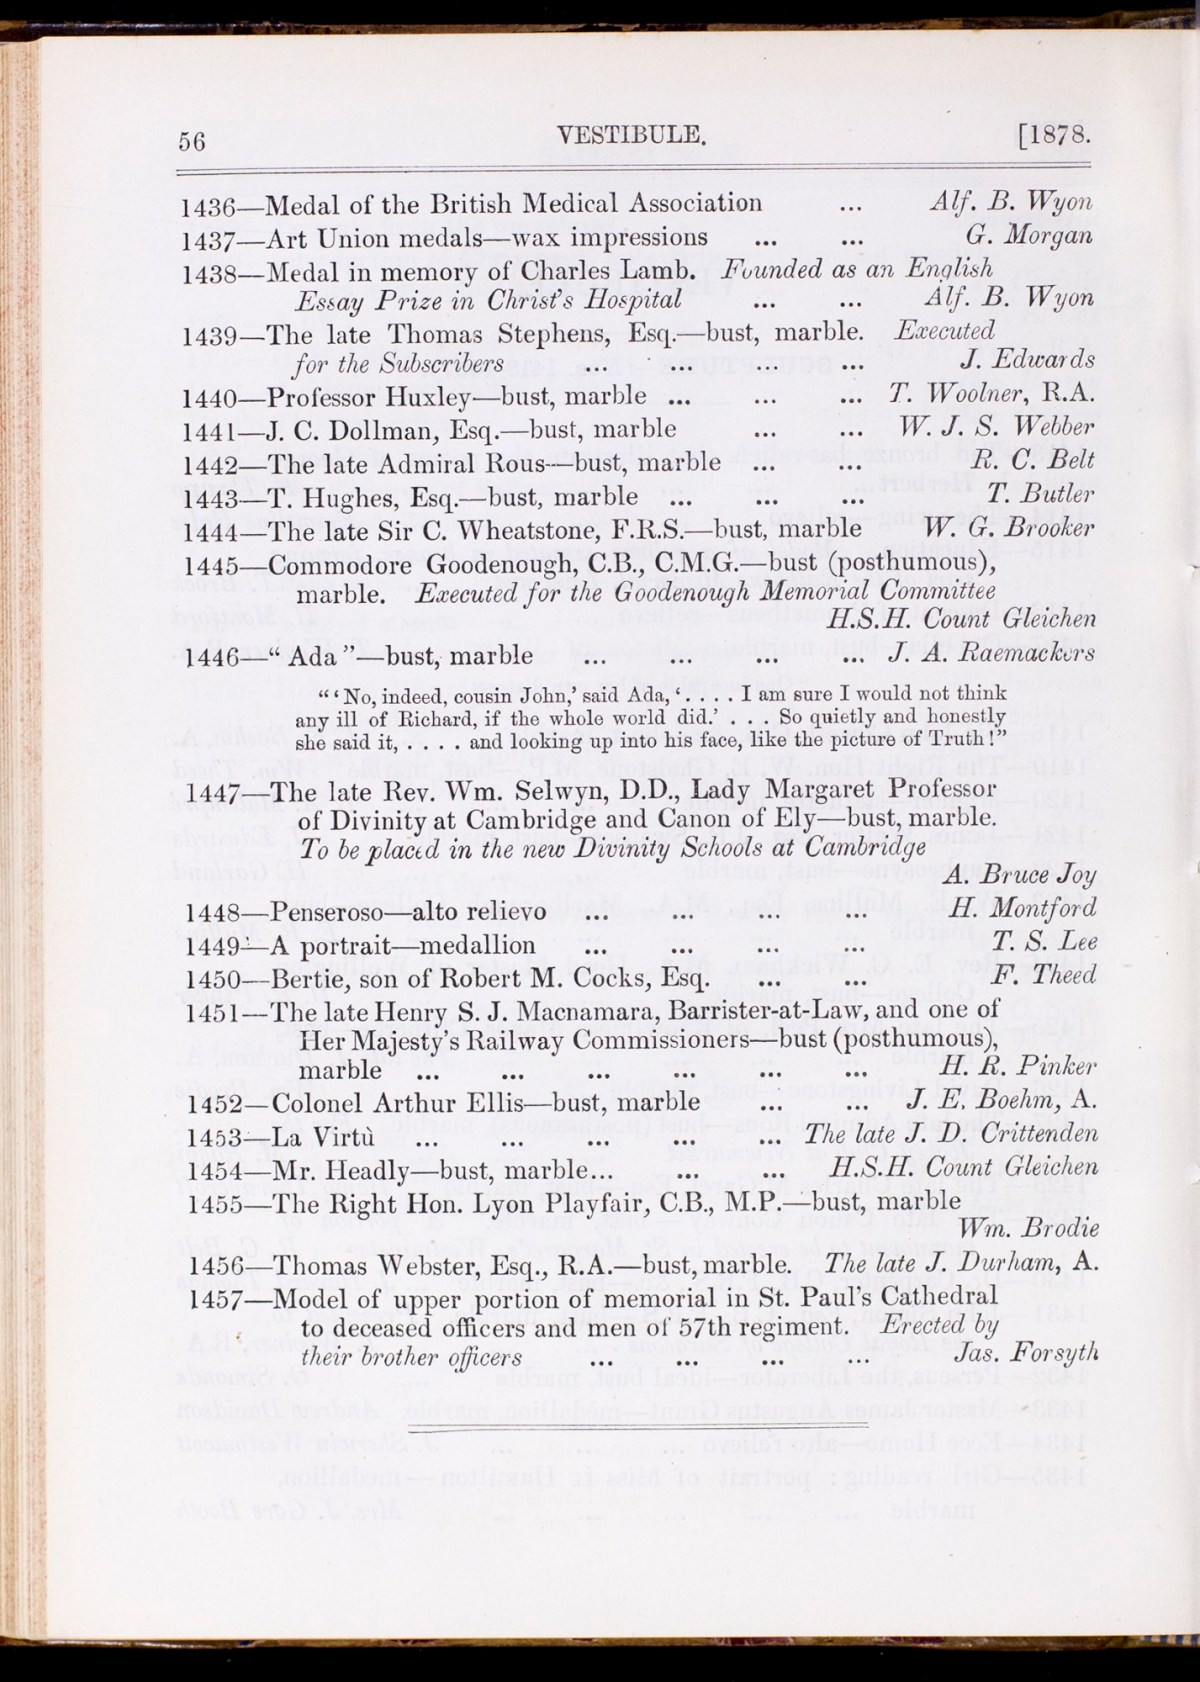 56 VESTIBULE. [1878.
1436—Medal of the British Medical Association ... Alf. B. Wyon
1437—Art Union medals—wax impressions ... ... G. Morgan
1438—Medal in memory of Charles Lamb. Founded as an English
Essay Prize in Christ's Hospital ... ... Alf. B. Wyon
1439—The late Thomas Stephens, Esq.—bust, marble. Executed
for the Subscribers ... ... ... ... J. Edwards
1440—Professor Huxley—bust, marble ... ... ... T. Woolner, R.A.
1441—J. C. Dollman, Esq.—bust, marble ... ... W. J. S. Webber
1442—The late Admiral Rous—bust, marble ... ... R. C. Belt
1443—T. Hughes, Esq.—bust, marble ... ... ... T. Butler
1444—The late Sir C. Wheatstone, F.R.S.—bust, marble W. G. Brooker
1445—Commodore Goodenough, C.B., C.M.G.—bust (posthumous),
marble. Executed for the Goodenough Memorial Committee
H.S.H. Count Gleichen
1446—“ Ada ”—bust, marble ... ... ... ... J. A. Raemackers
“ ‘ No, indeed, cousin John,’ said Ada, ‘ . . . . I am sure I would not think
any ill of Richard, if the whole world did.’ . . . So quietly and honestly
she said it, . . . . . and looking up into his face, like the picture of Truth !”
1447—The late Rev. Wm. Selwyn, D.D., Lady Margaret Professor
of Divinity at Cambridge and Canon of Ely—bust, marble.
To be placed in the new Divinity Schools at Cambridge
A. Bruce Joy
1448—Penseroso—alto relievo ... ... ... ... H. Montford
1449—A portrait—medallion ... ... ... ... T. S. Lee
1450—Bertie, son of Robert M. Cocks, Esq. ... ... F. Theed
1451—The late Henry S. J. Macnamara, Barrister-at-Law, and one of
Her Majesty's Railway Commissioners—bust (posthumous),
marble ... ... ... ... ... ... H. R. Pinker
1452—Colonel Arthur Ellis—bust, marble ... ... J. E. Boehm, A.
1453—La Virtù ... ... ... ... ... The late J. D. Crittenden
1454—Mr. Headly—bust, marble... ... ... H.S.H. Count Gleichen
1455—The Right Hon. Lyon Playfair, C.B., M.P.—bust, marble
Wm. Brodie
1456—Thomas Webster, Esq., R.A.—bust, marble. The late J. Durham, A.
1457—Model of upper portion of memorial in St. Paul's Cathedral
to deceased officers and men of 57th regiment. Erected by
their brother officers ... ... ... ... Jas. Forsyth